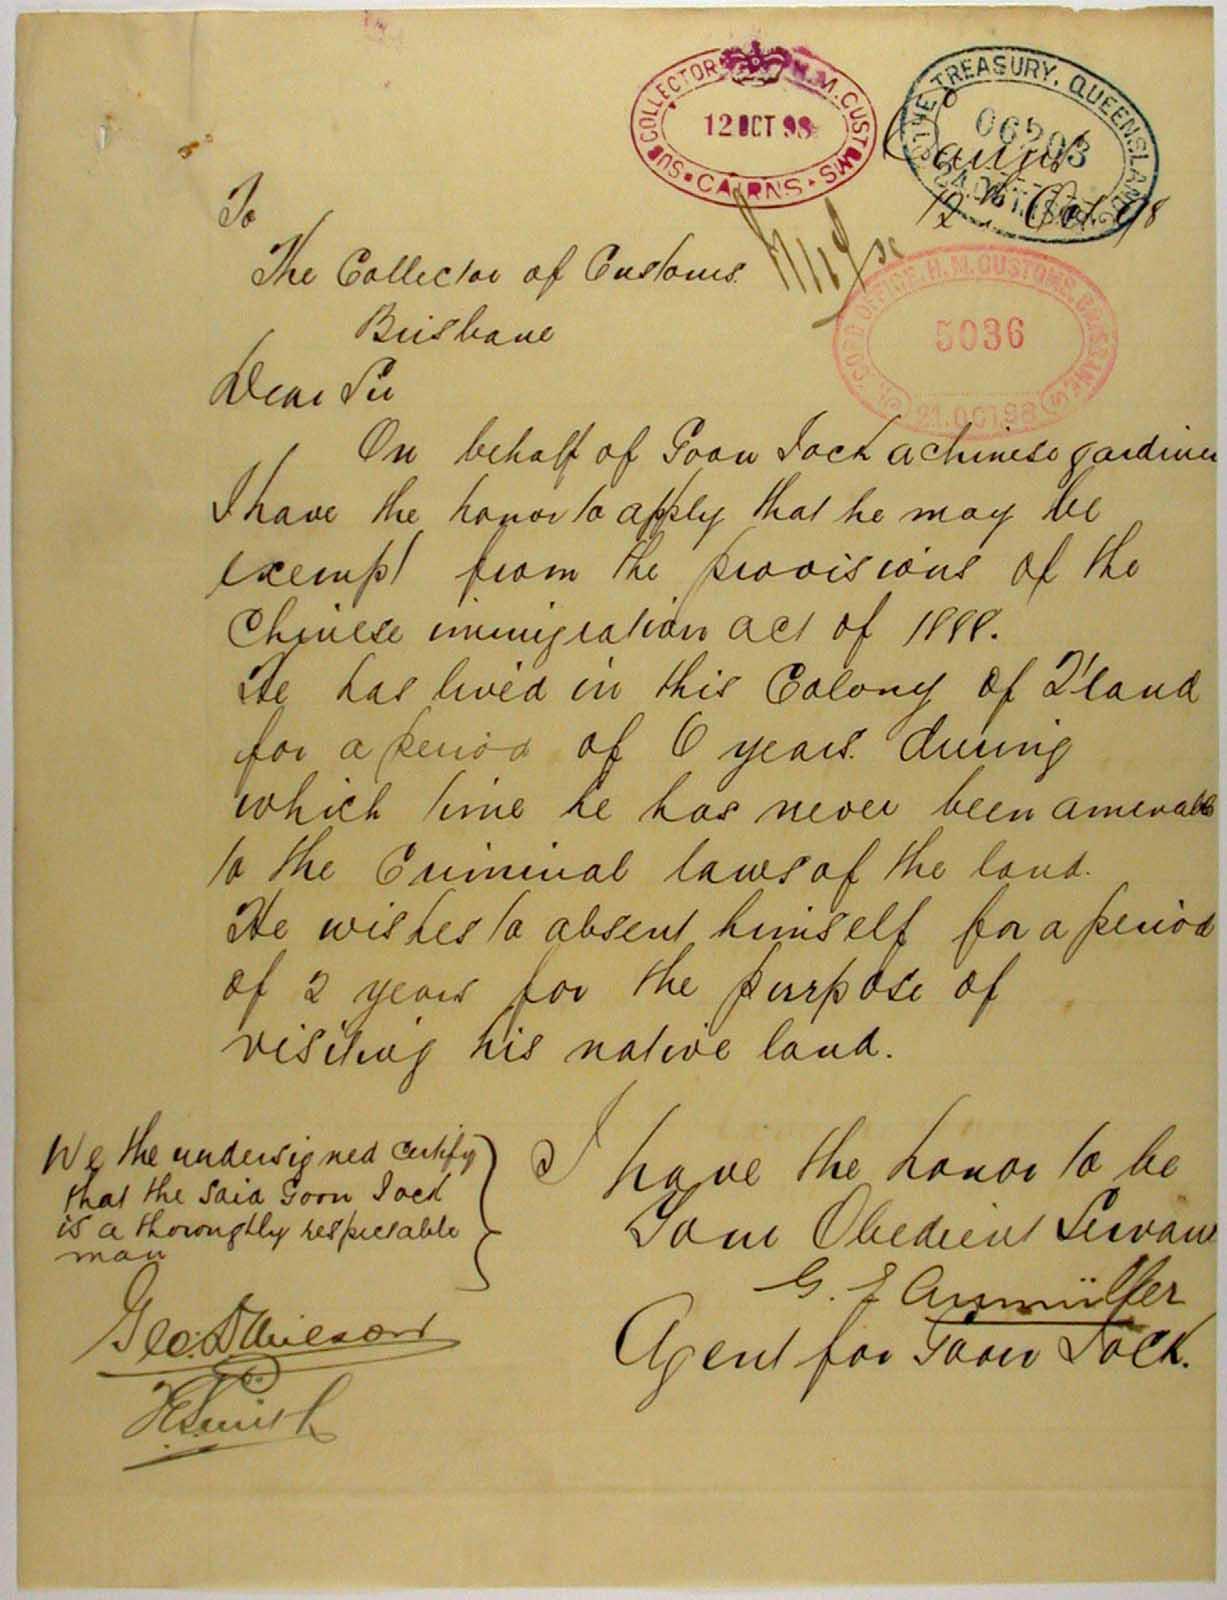 SUB COLLECTOR H.M. CUSTOMS
12 OCT 98
CAIRNS
THE TREASURY, QUEENSLAND
06203
Cairns
12th Oct 98
To
The Collector of Customs
Brisbane
RECORD OFFICE, H.M. CUSTOMS, BRISBANE
5036
21. OCT 98
Dear Sir
On behalf of Goon Jock a chinese gardiner
I have the honor to apply that he may be
exempt from the provisions of the
Chinese immigration act of 1888.
He has lived in this Colony of Q'land
for a period of 6 years. during
which time he has never been amenable
to the Criminal laws of the land.
He wishes to absent himself for a period
of 2 years for the purpose of
visiting his native land.
I have the honor to be
Your Obedient Servant
G. E Anmüller
Agent for Goon Jock.
We the undersigned certify
that the said Goon Jock
is a thoroughly respectable
man
Geo. Wilson
Smith